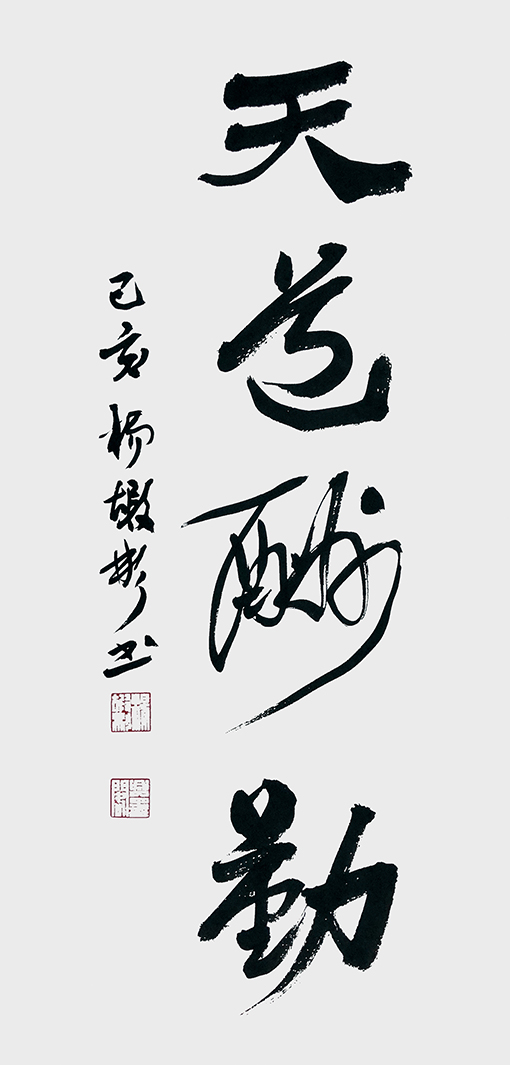 天道酬勤
己亥 杨墩彬书